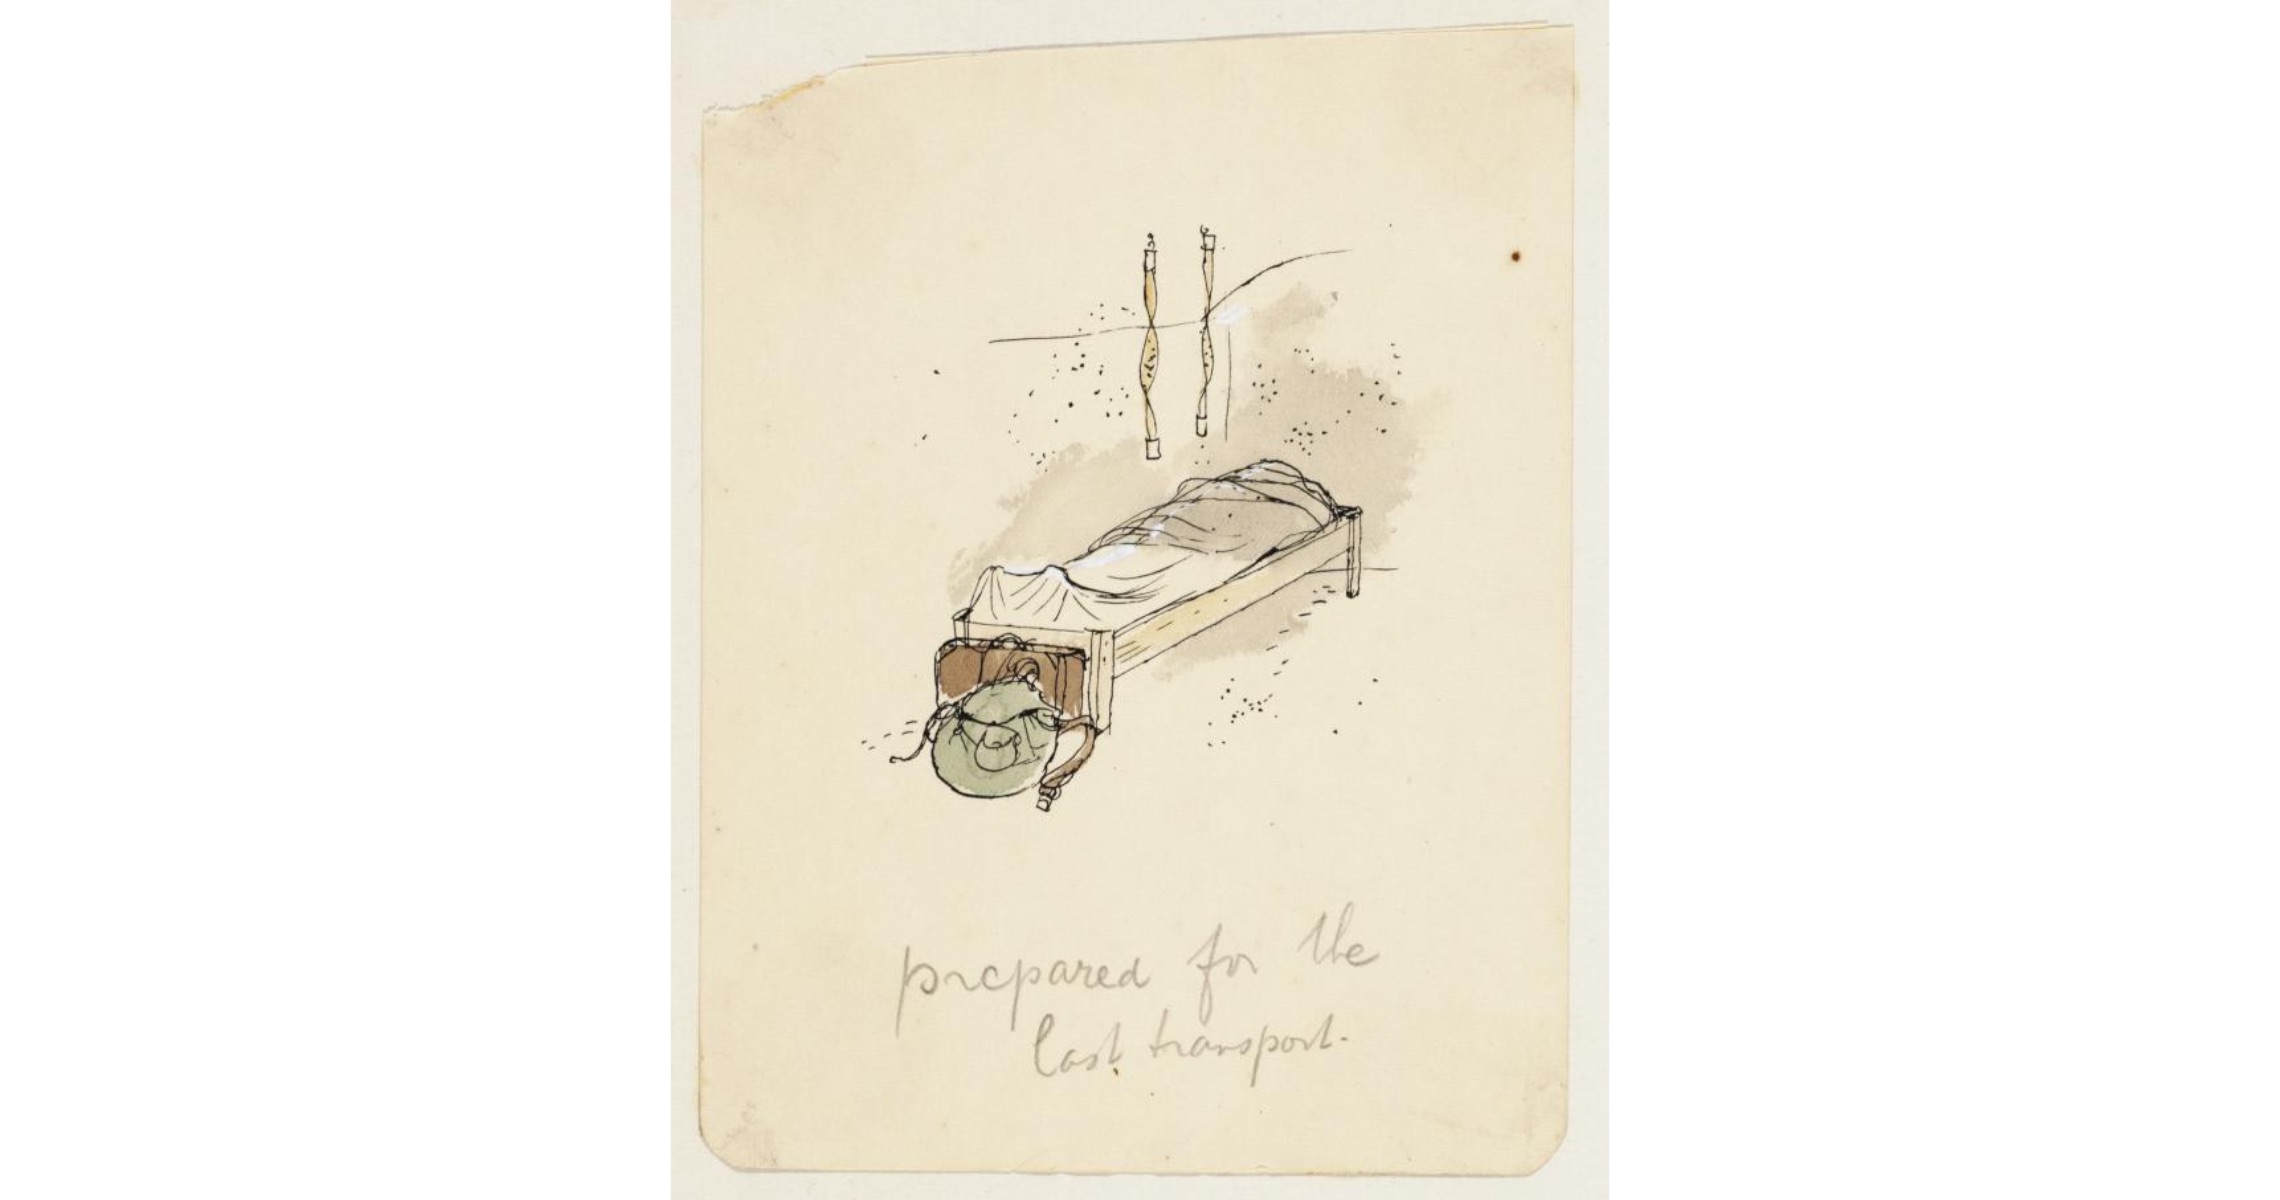 prepared for the
last transport.